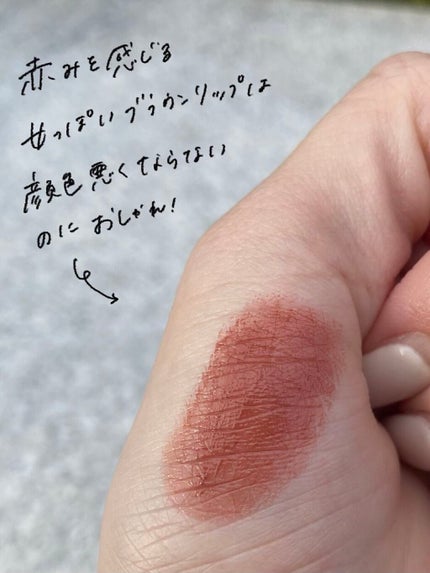 赤みを感じる
女っぽいブラウンリップは
顔色悪くならない
のにおしゃれ!